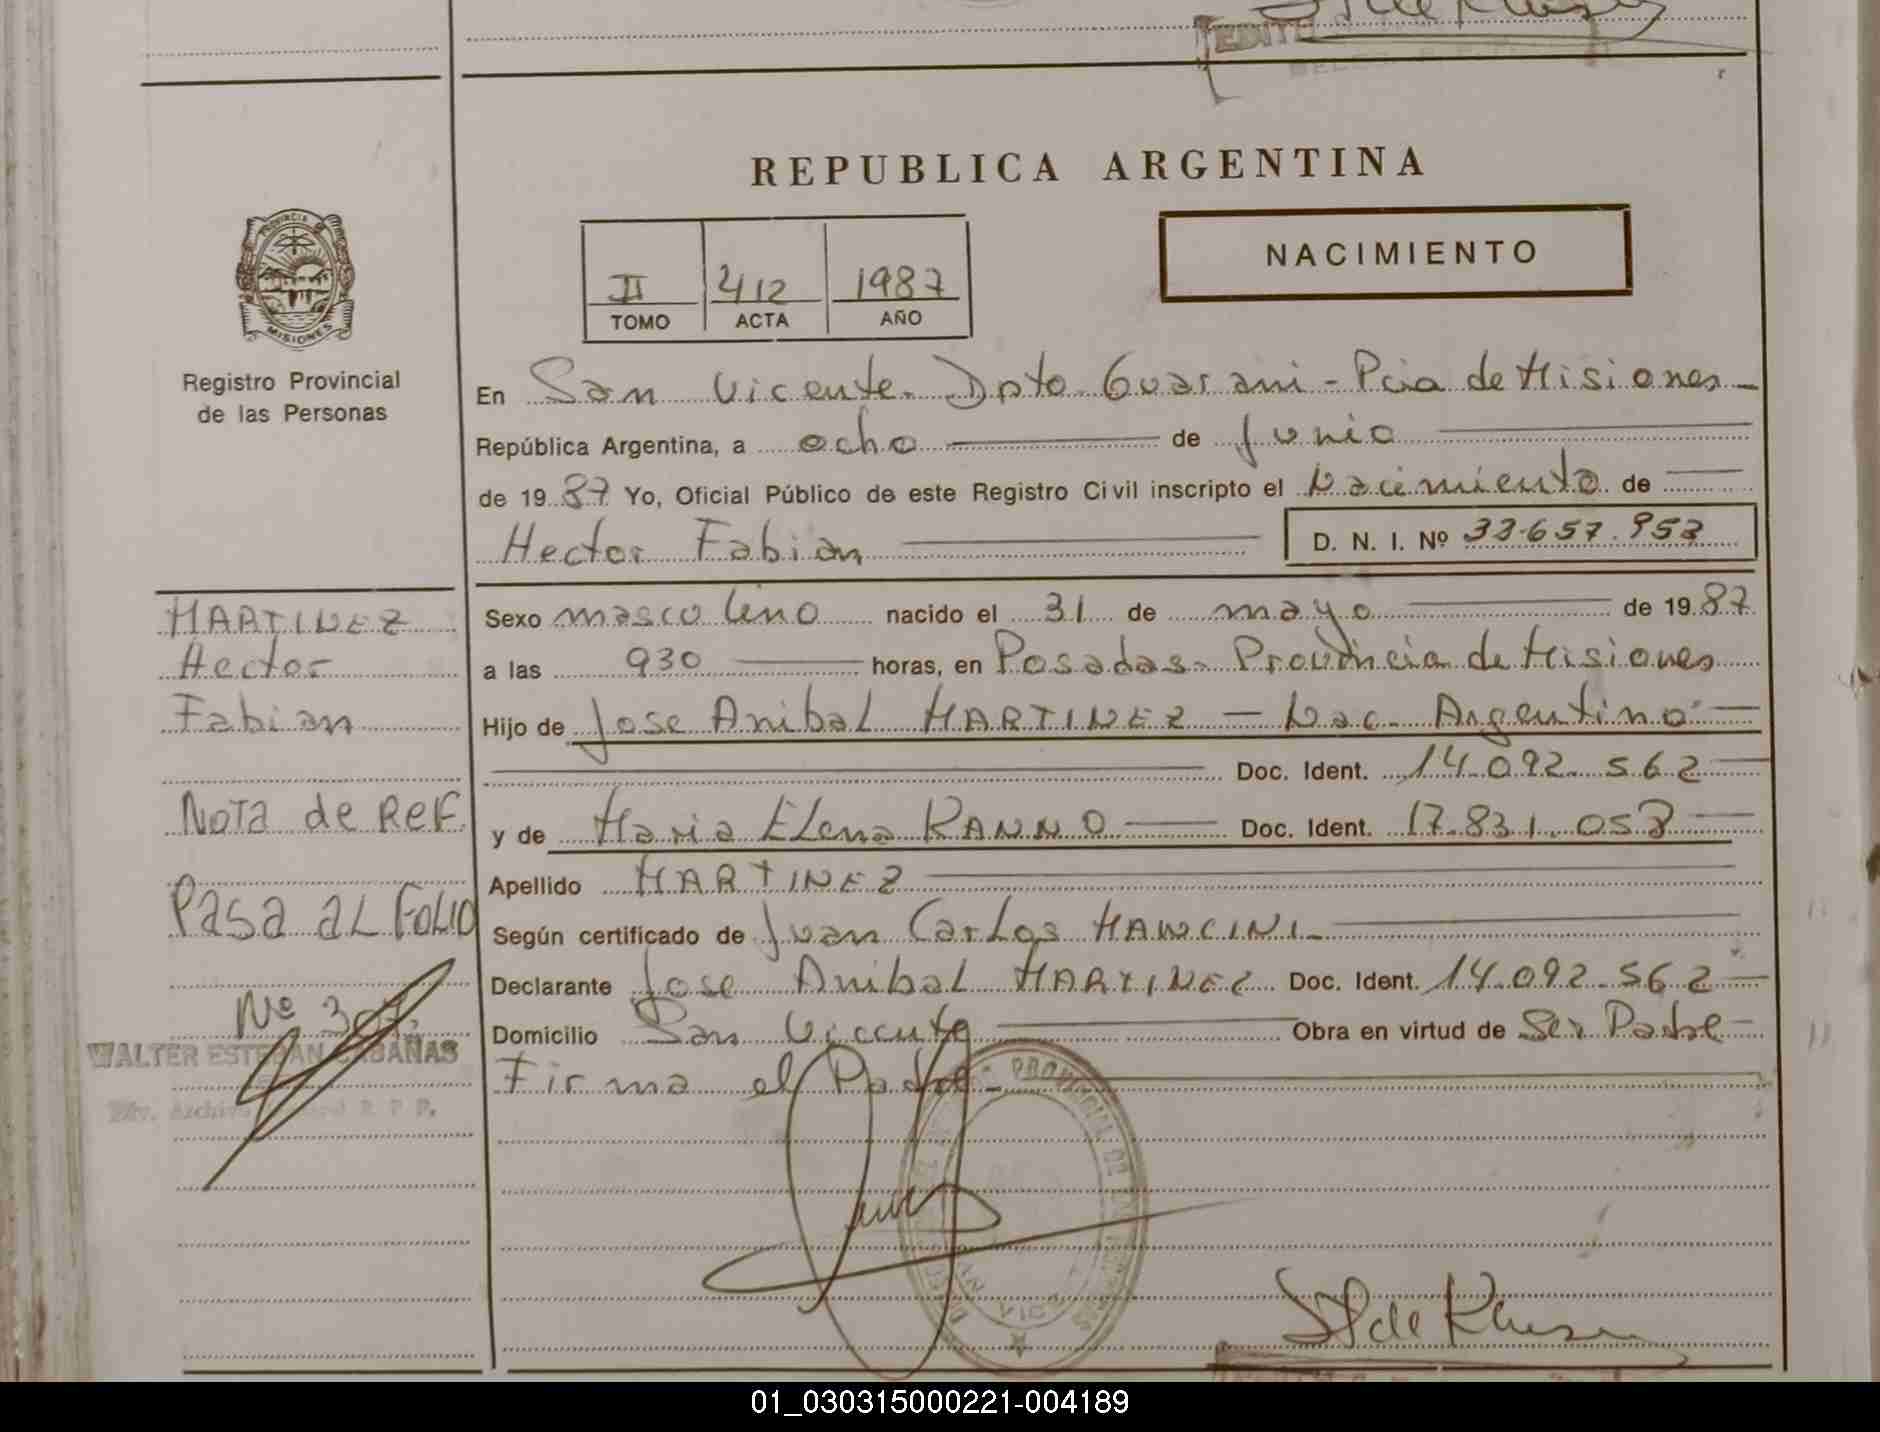 REPUBLICA ARGENTINA
NACIMIENTO
II 412 1987
TOMO ACTA AÑO
PROVINCIA DE MISIONES
Registro Provincial
de las Personas
En San Vicente. Dpto Guarani - Pcia de Misiones
República Argentina, a ocho de Junio
de 1987 Yo, Oficial Público de este Registro Civil inscripto el Nacimiento de
Hector Fabian D. N. I. Nº 33.657.953
MARTINEZ
Hector
Fabian
Nota de Ref.
Pasa al Folio
Nº 307.
WALTER ESTEBAN CABAÑAS
Div. Archivo General R. P. P.
Sexo masculino nacido el 31 de mayo de 1987
a las 930 horas, en Posadas - Provincia de Misiones
Hijo de Jose Anibal MARTINEZ - Nac. Argentino
Doc. Ident. 14.092.562
y de Maria Elena RANNO Doc. Ident. 17.831.053
Apellido MARTINEZ
Según certificado de Juan Carlos MANCINI
Declarante Jose Anibal MARTINEZ Doc. Ident. 14.092.562
Domicilio San Vicente Obra en virtud de Ser Padre
Firma el Padre
01_030315000221-004189